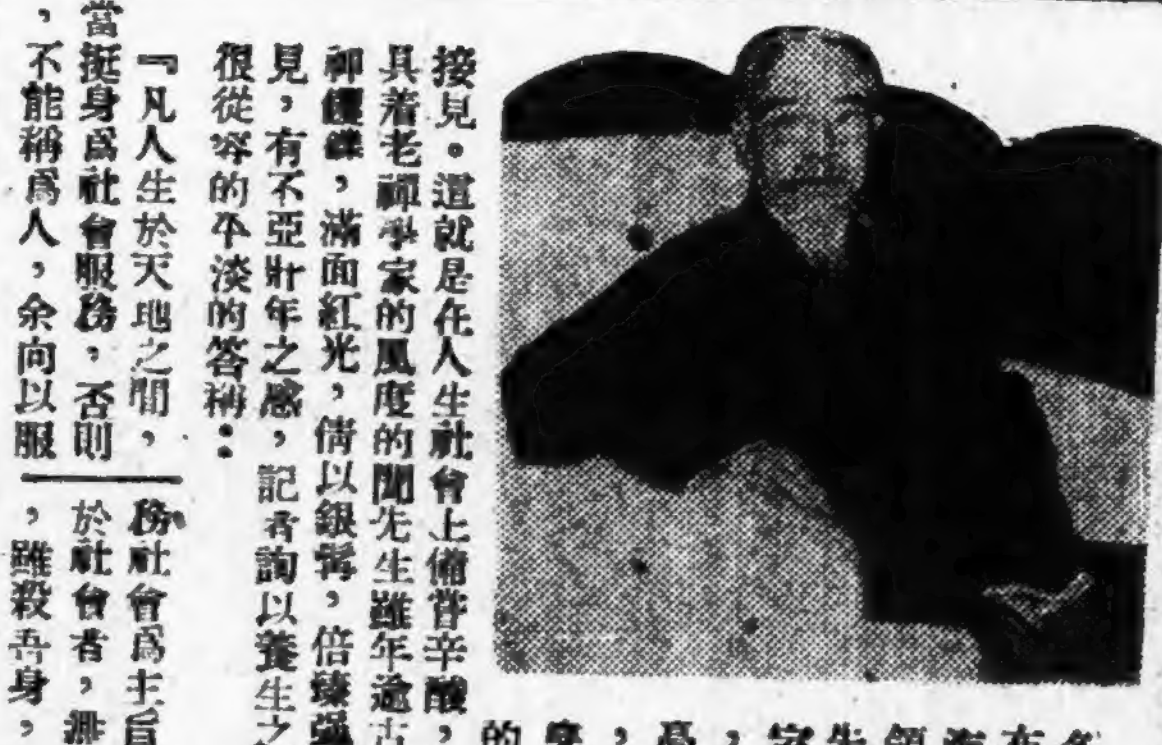 接見。這就是在人生社會上備嘗辛酸，
具着老禪學家的風度的聞先生雖年逾古
神矍鑠，滿面紅光，倩以銀髯，倍臻
見，有不亞壯年之感，記者詢以養生之
很從容的平淡的答稱：
『凡人生於天地之間，
當挺身爲社會服務，否則
，不能稱爲人，余向以服
務社會爲主旨
於社會者，
，雖殺吾身，